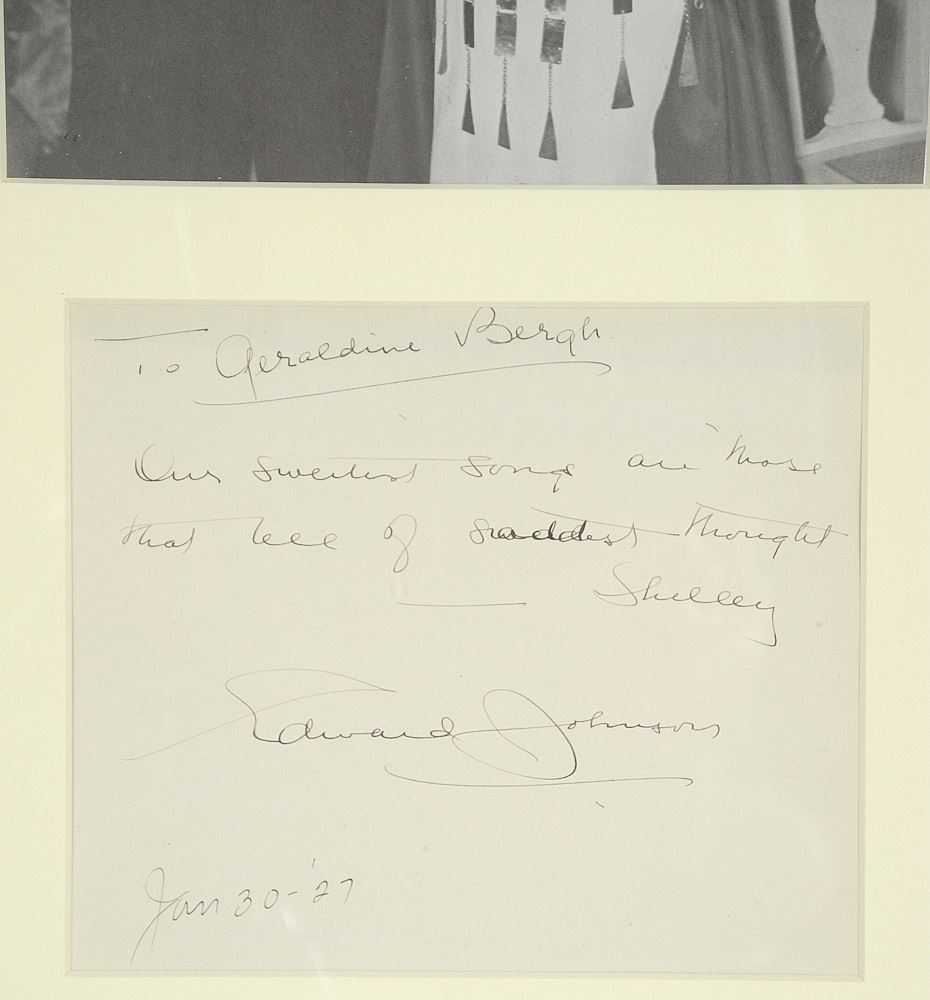 To Geraldine Bergh
Our sweetest songs are those
that tell of saddest thought
Shelley
Edward Johnson
Jan 30-'27